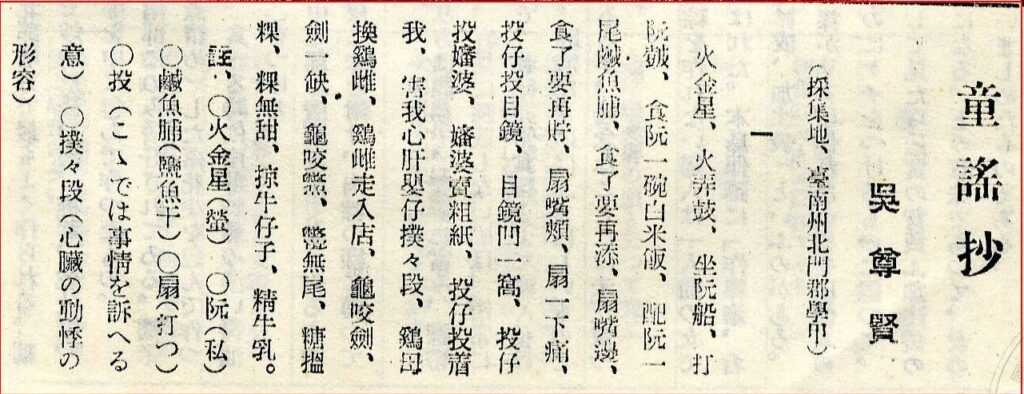 童謠抄
吳尊賢
(採集地、臺南州北門郡學甲)
一
火金星、火弄鼓、坐阮船、打
阮皷、食阮一碗白米飯、配阮一
尾鹹魚脯、食了要再添、扇嘴邊、
食了要再貯、扇嘴頰、扇一下痛、
投仔投目鏡、目鏡鬥一窩、投仔
投嬸婆、嬸婆賣粗紙、投仔投着
我、害我心肝嬰仔撲々段、鷄母
換鷄雌、鷄雌走入店、龜咬劍、
劍一缺、龜咬鱉、鱉無尾、糖搵
粿、粿無甜、掠牛仔子、精牛乳。
註、○火金星(螢) ○阮(私)
○鹹魚脯(鹽魚干)○扇(打つ)
○投(こゝでは事情を訴へる
意) ○撲々段(心臟の動悸の
形容)